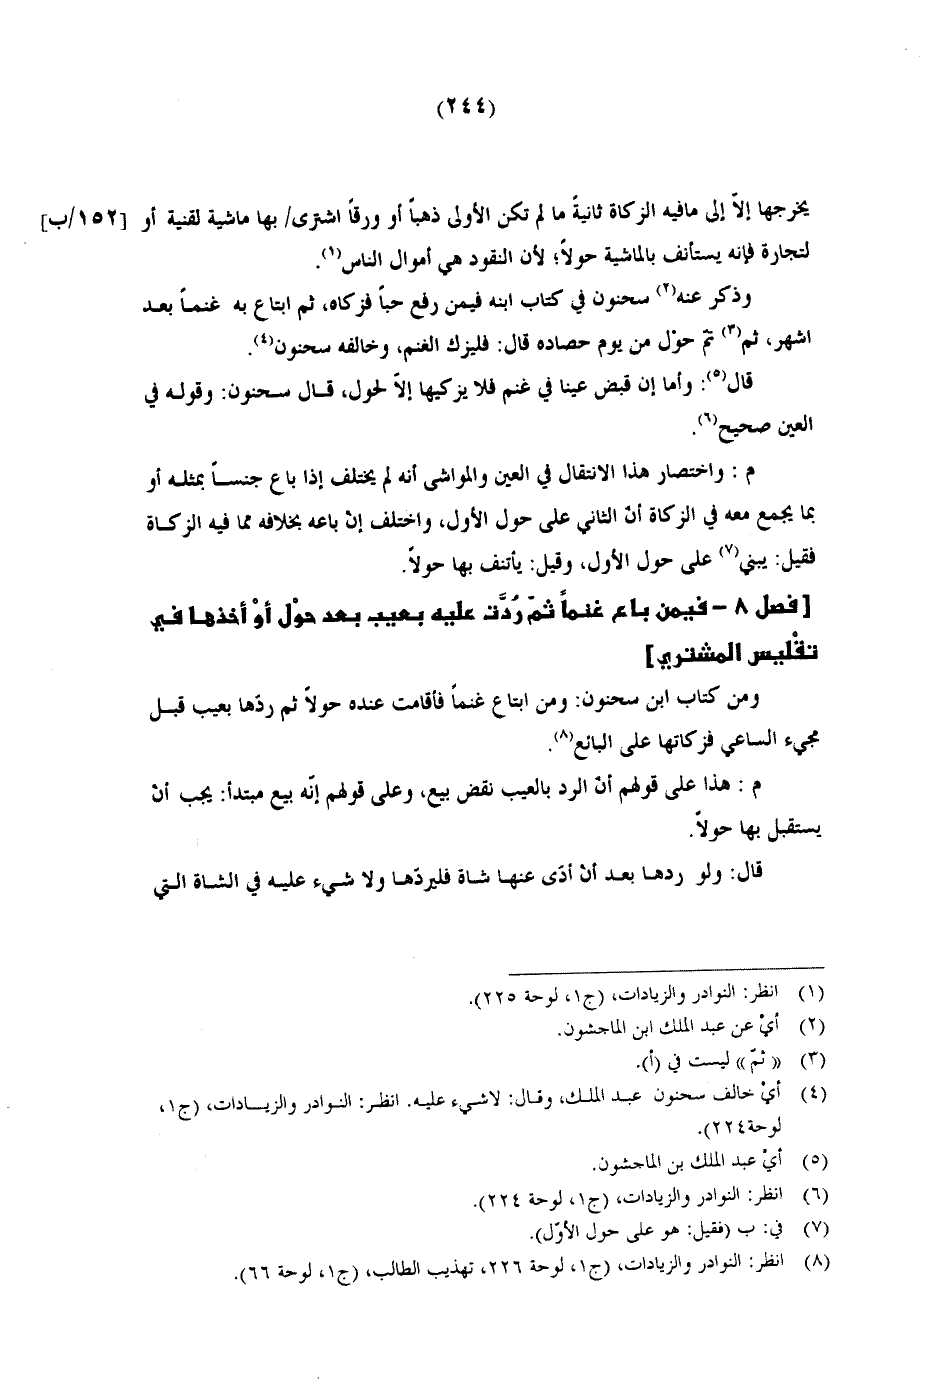 (٢٤٤)
يخرجها إلاّ إلى مافيه الزكاة ثانيةً ما لم تكن الأولى ذهباً أو ورقاً اشترى/ بها ماشية لقنية أو [١٥٢/ب]
لتجارة فإنه يستأنف بالماشية حولاً؛ لأن النقود هي أموال الناس(١).
وذكر عنه(٢) سحنون في كتاب ابنه فيمن رفع حباً فزكاه، ثم ابتاع به غنمـاً بعـد
اشهر، ثم(٣) تمّ حوْل من يوم حصاده قال: فليزك الغنم، وخالفه سحنون(٤).
قال(٥): وأما إن قبض عينا في غنم فلا يزكيها إلاّ لحول، قـال سـحنون: وقولـه في
العين صحيح(٦).
م : واختصار هذا الانتقال في العين والمواشى أنه لم يختلف إذا باع جنسـاً بمثلـه أو
بما يجمع معه في الزكاة أنّ الثاني على حول الأول، واختلف إنْ باعه بخلافه مما فيه الزكـاة
فقيل: يبني(٧) على حول الأول، وقيل: يأتنف بها حولاً.
[فصل ٨ – فيمن باع غنماً ثمّ رُدَّت عليه بعيب بعد حوْل أوْ أخذها في
تفْليس المشتري]
ومن كتاب ابن سحنون: ومن ابتاع غنماً فأقامت عنده حولاً ثم ردّها بعيب قبـل
مجيء الساعي فزكاتها على البائع(٨).
م : هذا على قولهم أنّ الرد بالعيب نقض بيع، وعلى قولهم إنّه بيع مبتدأ: يجب أنْ
يستقبل بها حولاً.
قال: ولو ردها بعد أنْ أدّى عنها شاة فليردّها ولا شيء عليه في الشاة التي
(١) انظر: النوادر والزيادات، (ج١، لوحة ٢٢٥).
(٢) أيْ عن عبد الملك ابن الماجشون.
(٣) « ثمّ » ليست في (أ).
(٤) أيْ خالف سحنون عبـد الملـك، وقـال: لاشيء عليـه. انظـر: النـوادر والزيـادات، (ج١،
لوحة٢٢٤).
(٥) أيْ عبد الملك بن الماجشون.
(٦) انظر: النوادر والزيادات، (ج١، لوحة ٢٢٤).
(٧) في: ب (فقيل: هو على حول الأوّل).
(٨) انظر: النوادر والزيادات، (ج١، لوحة ٢٢٦، تهذيب الطالب، (ج١، لوحة ٦٦).